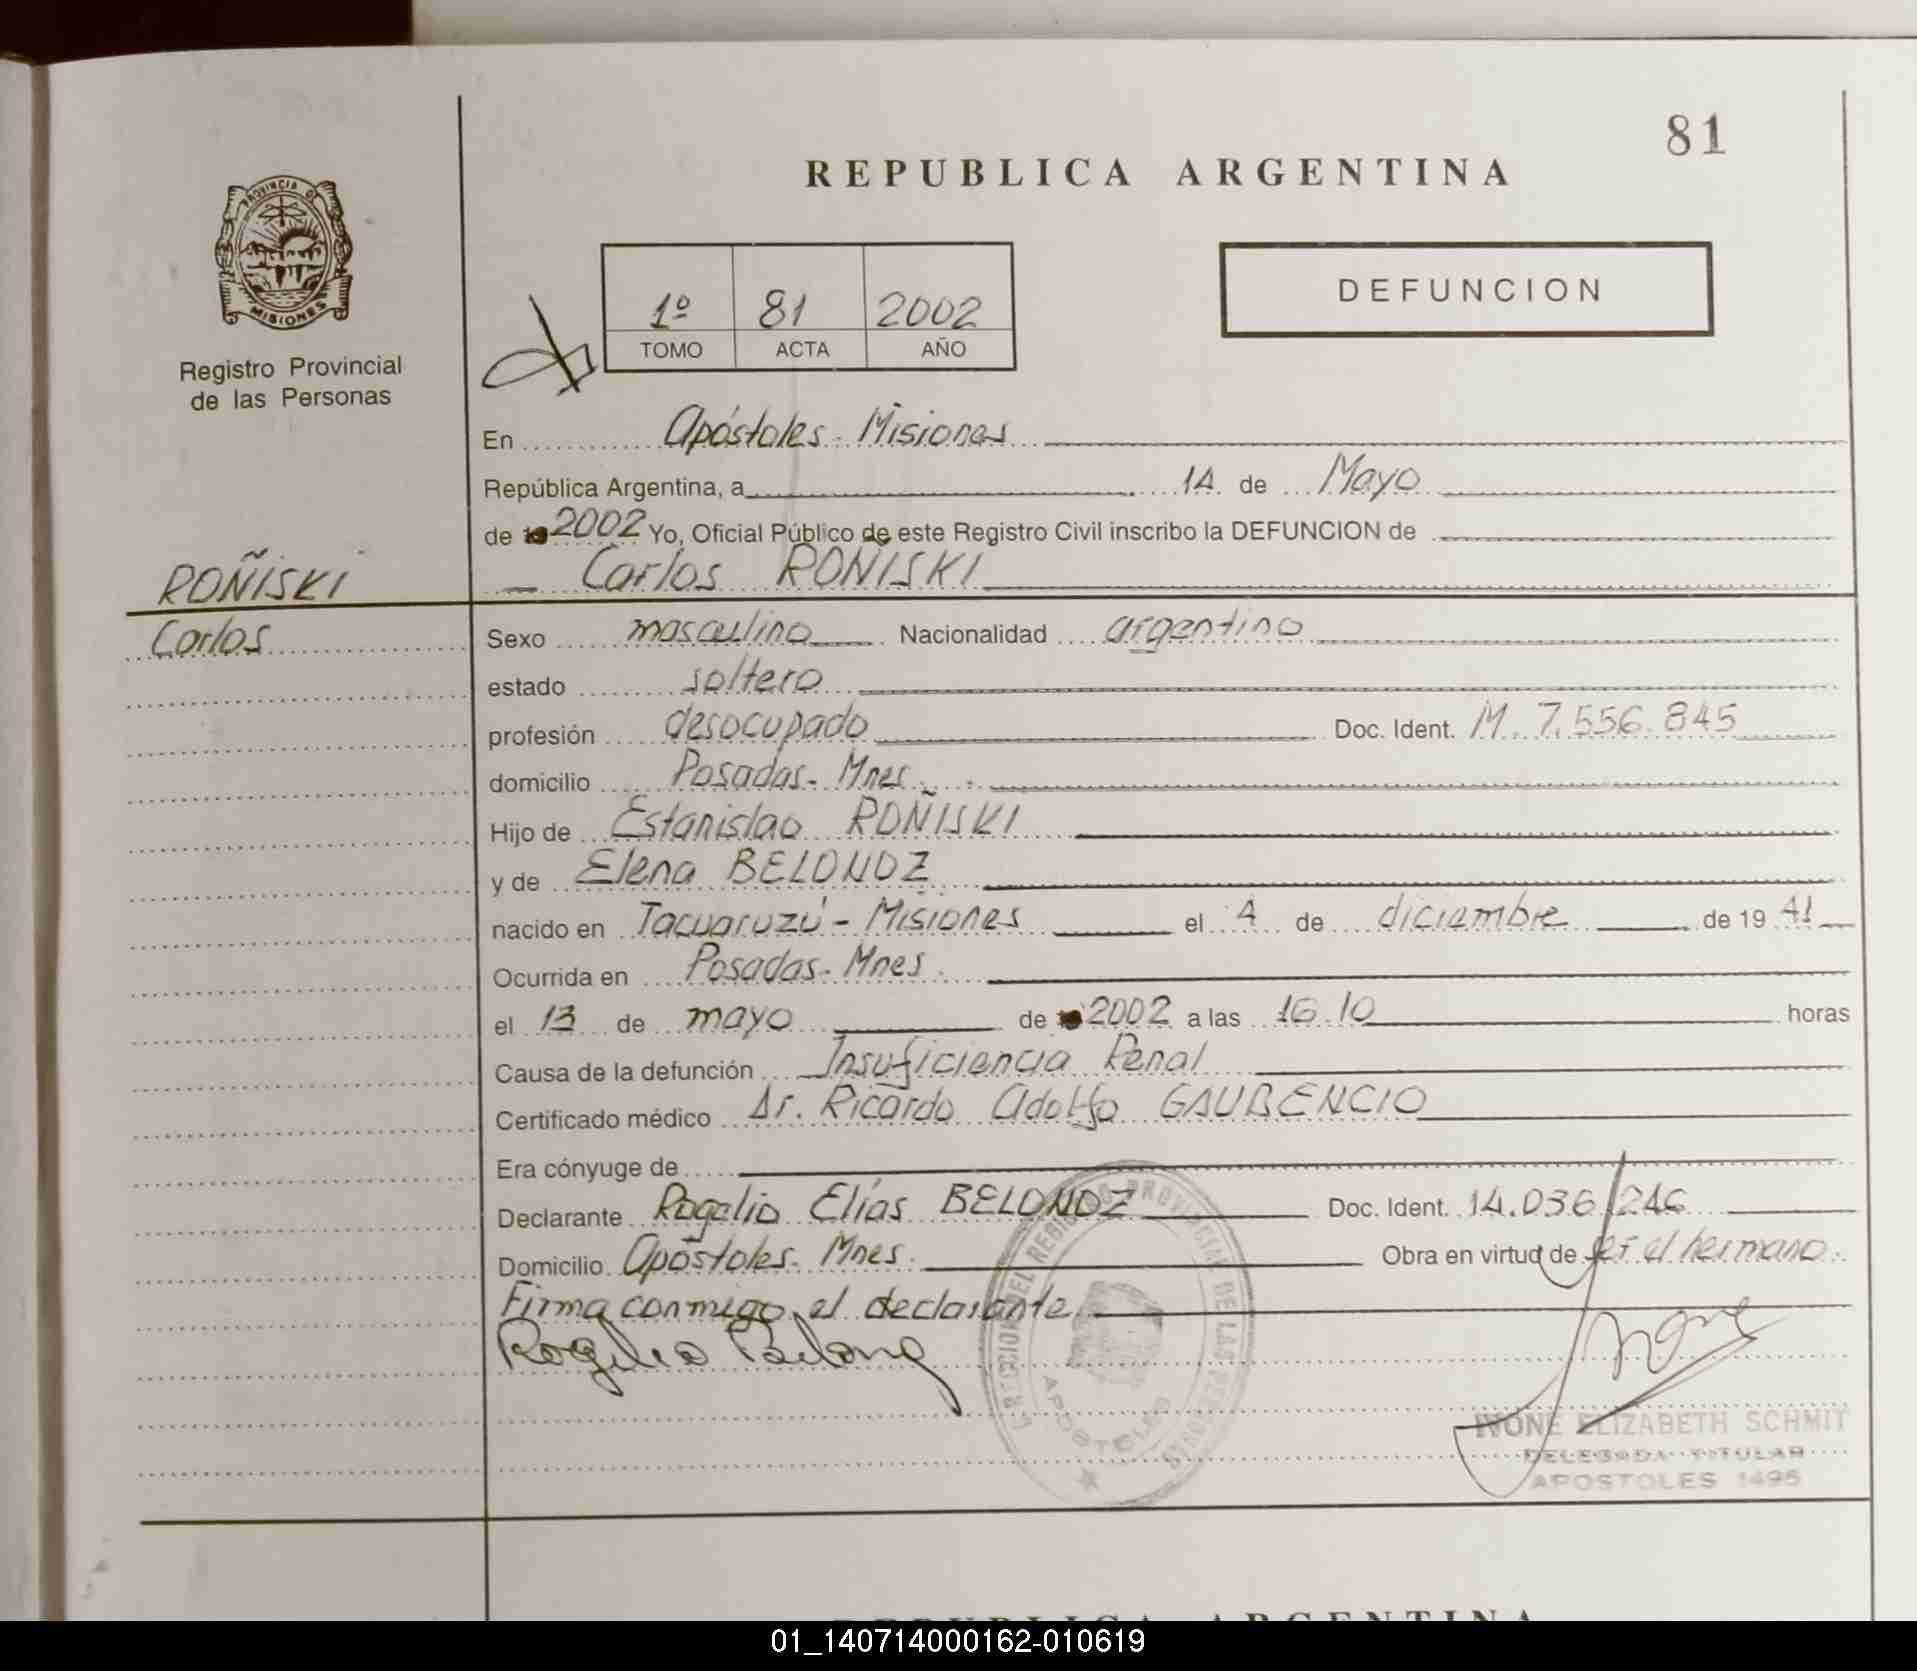 81
REPUBLICA ARGENTINA
PROVINCIA DE
MISIONES
Registro Provincial
de las Personas
1º 81 2002
TOMO ACTA AÑO
DEFUNCION
En Apóstoles - Misiones
República Argentina, a 14 de Mayo
de 2002 Yo, Oficial Público de este Registro Civil inscribo la DEFUNCION de
Carlos ROÑISKI
ROÑISKI
Carlos
Sexo masculino Nacionalidad argentino
estado soltero
profesión desocupado Doc. Ident. M. 7.556.845
domicilio Posadas - Mnes.
Hijo de Estanislao ROÑISKI
y de Elena BELONOZ
nacido en Tacuaruzú - Misiones el 4 de diciembre de 19 41
Ocurrida en Posadas - Mnes.
el 13 de mayo de 2002 a las 16.10 horas
Causa de la defunción Insuficiencia Renal
Certificado médico Dr. Ricardo Adolfo GAUBENCIO
Era cónyuge de
Declarante Rogelio Elías BELONOZ Doc. Ident. 14.036.246
Domicilio Apóstoles - Mnes. Obra en virtud de ser el hermano.
Firma conmigo el declarante.
Rogelio
DIRECCION DEL REGISTRO PROVINCIAL DE LAS PERSONAS
APOSTOLES
IVONE ELIZABETH SCHMIT
DELEGADA TITULAR
APOSTOLES 1495
REPUBLICA ARGENTINA
01_140714000162-010619